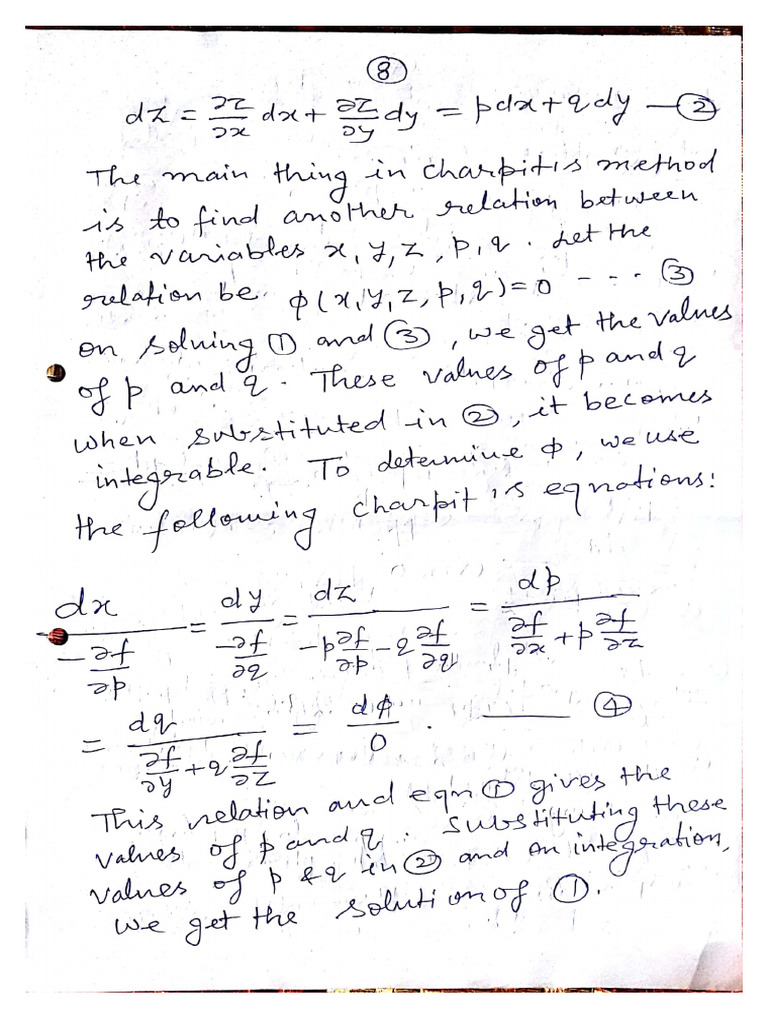 ⑧
dz = ∂z/∂x dx + ∂z/∂y dy = pdx + qdy — ②
The main thing in charpit's method
is to find another relation between
the variables x, y, z, p, q. Let the
relation be ϕ(x, y, z, p, q) = 0 - - - ③
on solving ① and ③, we get the values
of p and q. These values of p and q
when substituted in ②, it becomes
integrable. To determine ϕ, we use
the following charpit's equations:
dx/(-∂f/∂p) = dy/(-∂f/∂q) = dz/(-p∂f/∂p - q∂f/∂q) = dp/(∂f/∂x + p∂f/∂z)
= dq/(∂f/∂y + q∂f/∂z) = dϕ/0 . —— ④
This relation and eqn ① gives the
values of p and q. Substituting these
values of p & q in ② and on integration,
we get the solution of ①.